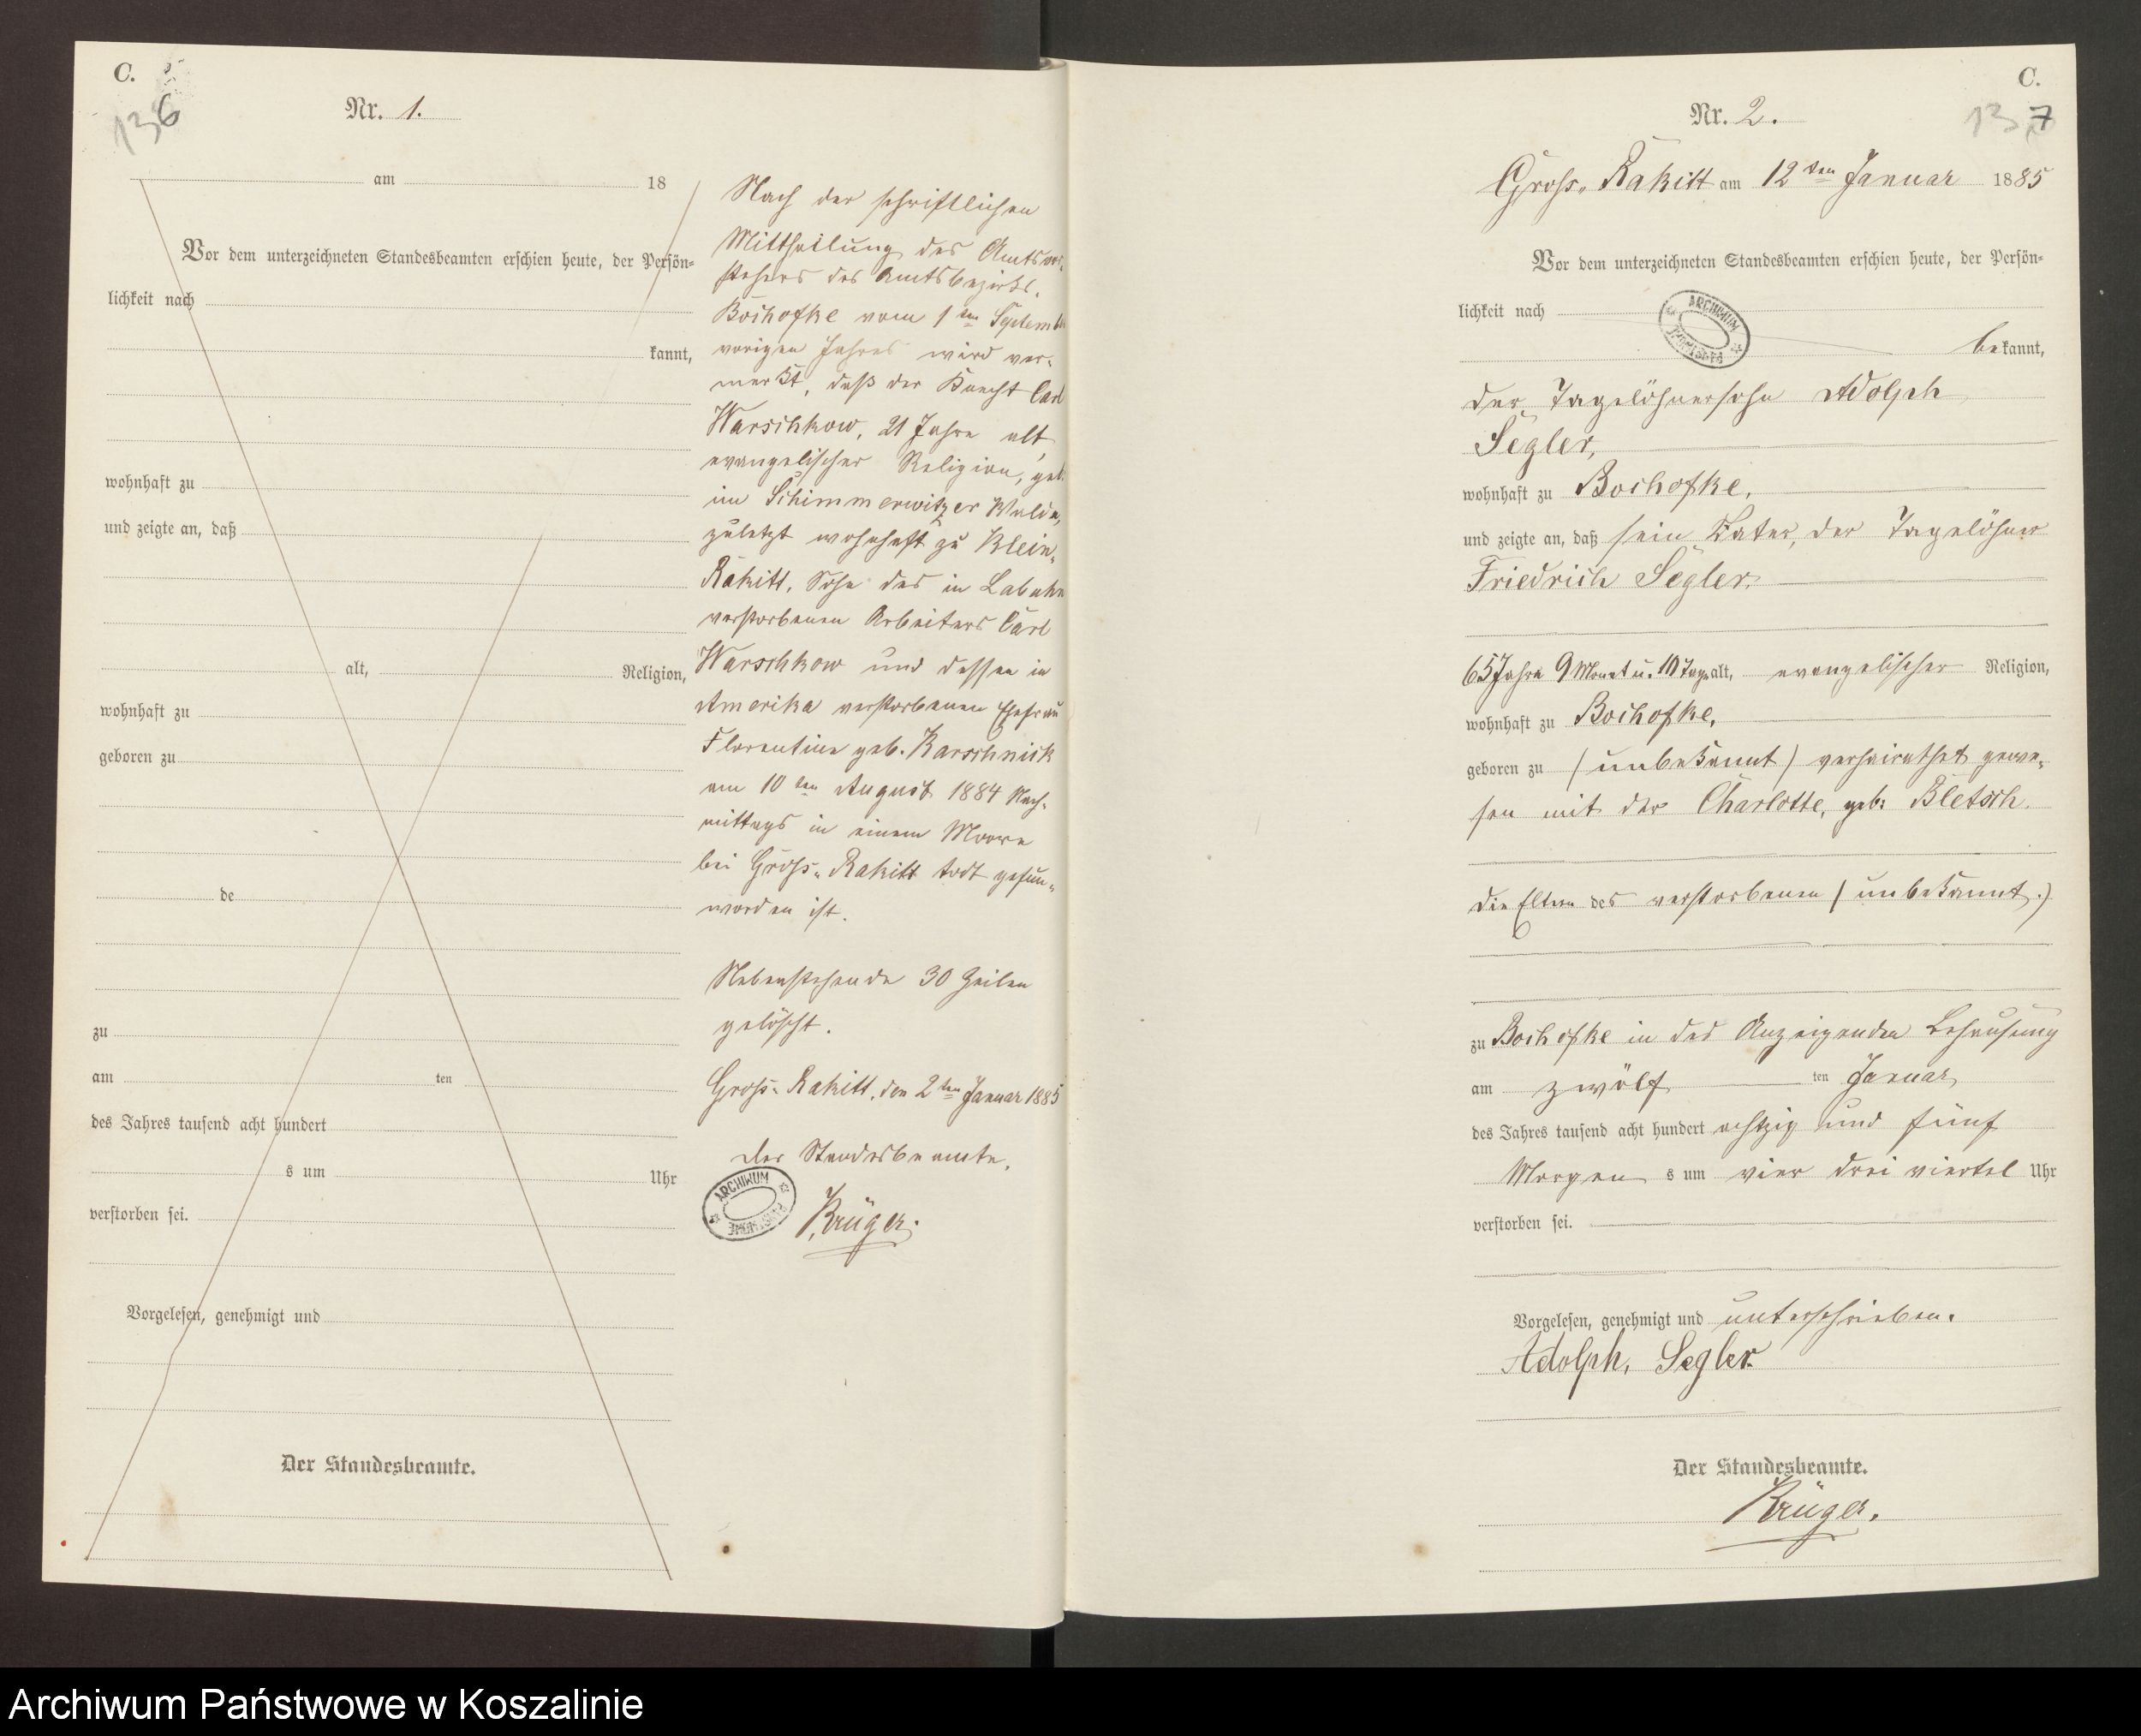 C.
136
Nr. 1.
am 18
Vor dem unterzeichneten Standesbeamten erschien heute, der Persön-
lichkeit nach
kannt,
wohnhaft zu
und zeigte an, daß
alt, Religion,
wohnhaft zu
geboren zu
de
zu
am ten
des Jahres tausend acht hundert
s um Uhr
verstorben sei.
Vorgelesen, genehmigt und
Der Standesbeamte.
Nach der schriftlichen
Mittheilung des Amtsvor-
stehers des Amtsbezirks
Bochofke vom 1ten September
vorigen Jahres wird ver-
merkt, daß der Knecht Carl
Warschkow, 21 Jahre alt,
evangelischer Religion, geb.
im Schimmerwitzer Walde,
zuletzt wohnhaft zu Klein-
Rakitt, Sohn des in Labuhn
verstorbenen Arbeiters Carl
Warschkow und dessen in
Amerika verstorbenen Ehefrau
Florentine geb. Karschnick
am 10ten August 1884 Nach-
mittags in einem Moore
bei Gross-Rakitt todt gefun-
worden ist.
Nebenstehende 30 Zeilen
gelöscht.
Gross-Rakitt, den 2ten Januar 1885
Der Standesbeamte,
Krüger.
ARCHIWUM
C.
137
Nr. 2.
Gross-Rakitt am 12ten Januar 1885
Vor dem unterzeichneten Standesbeamten erschien heute, der Persön-
lichkeit nach
ARCHIWUM
bekannt,
der Tagelöhnersohn Adolph
Segler,
wohnhaft zu Bochofke,
und zeigte an, daß sein Vater, der Tagelöhner
Friedrich Segler,
65 Jahre 9 Monat u. 10 Tage alt, evangelischer Religion,
wohnhaft zu Bochofke,
geboren zu (unbekannt) verheirathet gewe-
sen mit der Charlotte, geb: Bletsch.
die Eltern des verstorbenen (unbekannt.)
zu Bochofke in des Anzeigenden Behausung
am zwölf ten Januar
des Jahres tausend acht hundert achtzig und fünf
Morgens um vier drei viertel Uhr
verstorben sei.
Vorgelesen, genehmigt und unterschrieben.
Adolph, Segler.
Der Standesbeamte.
Krüger.
Archiwum Państwowe w Koszalinie